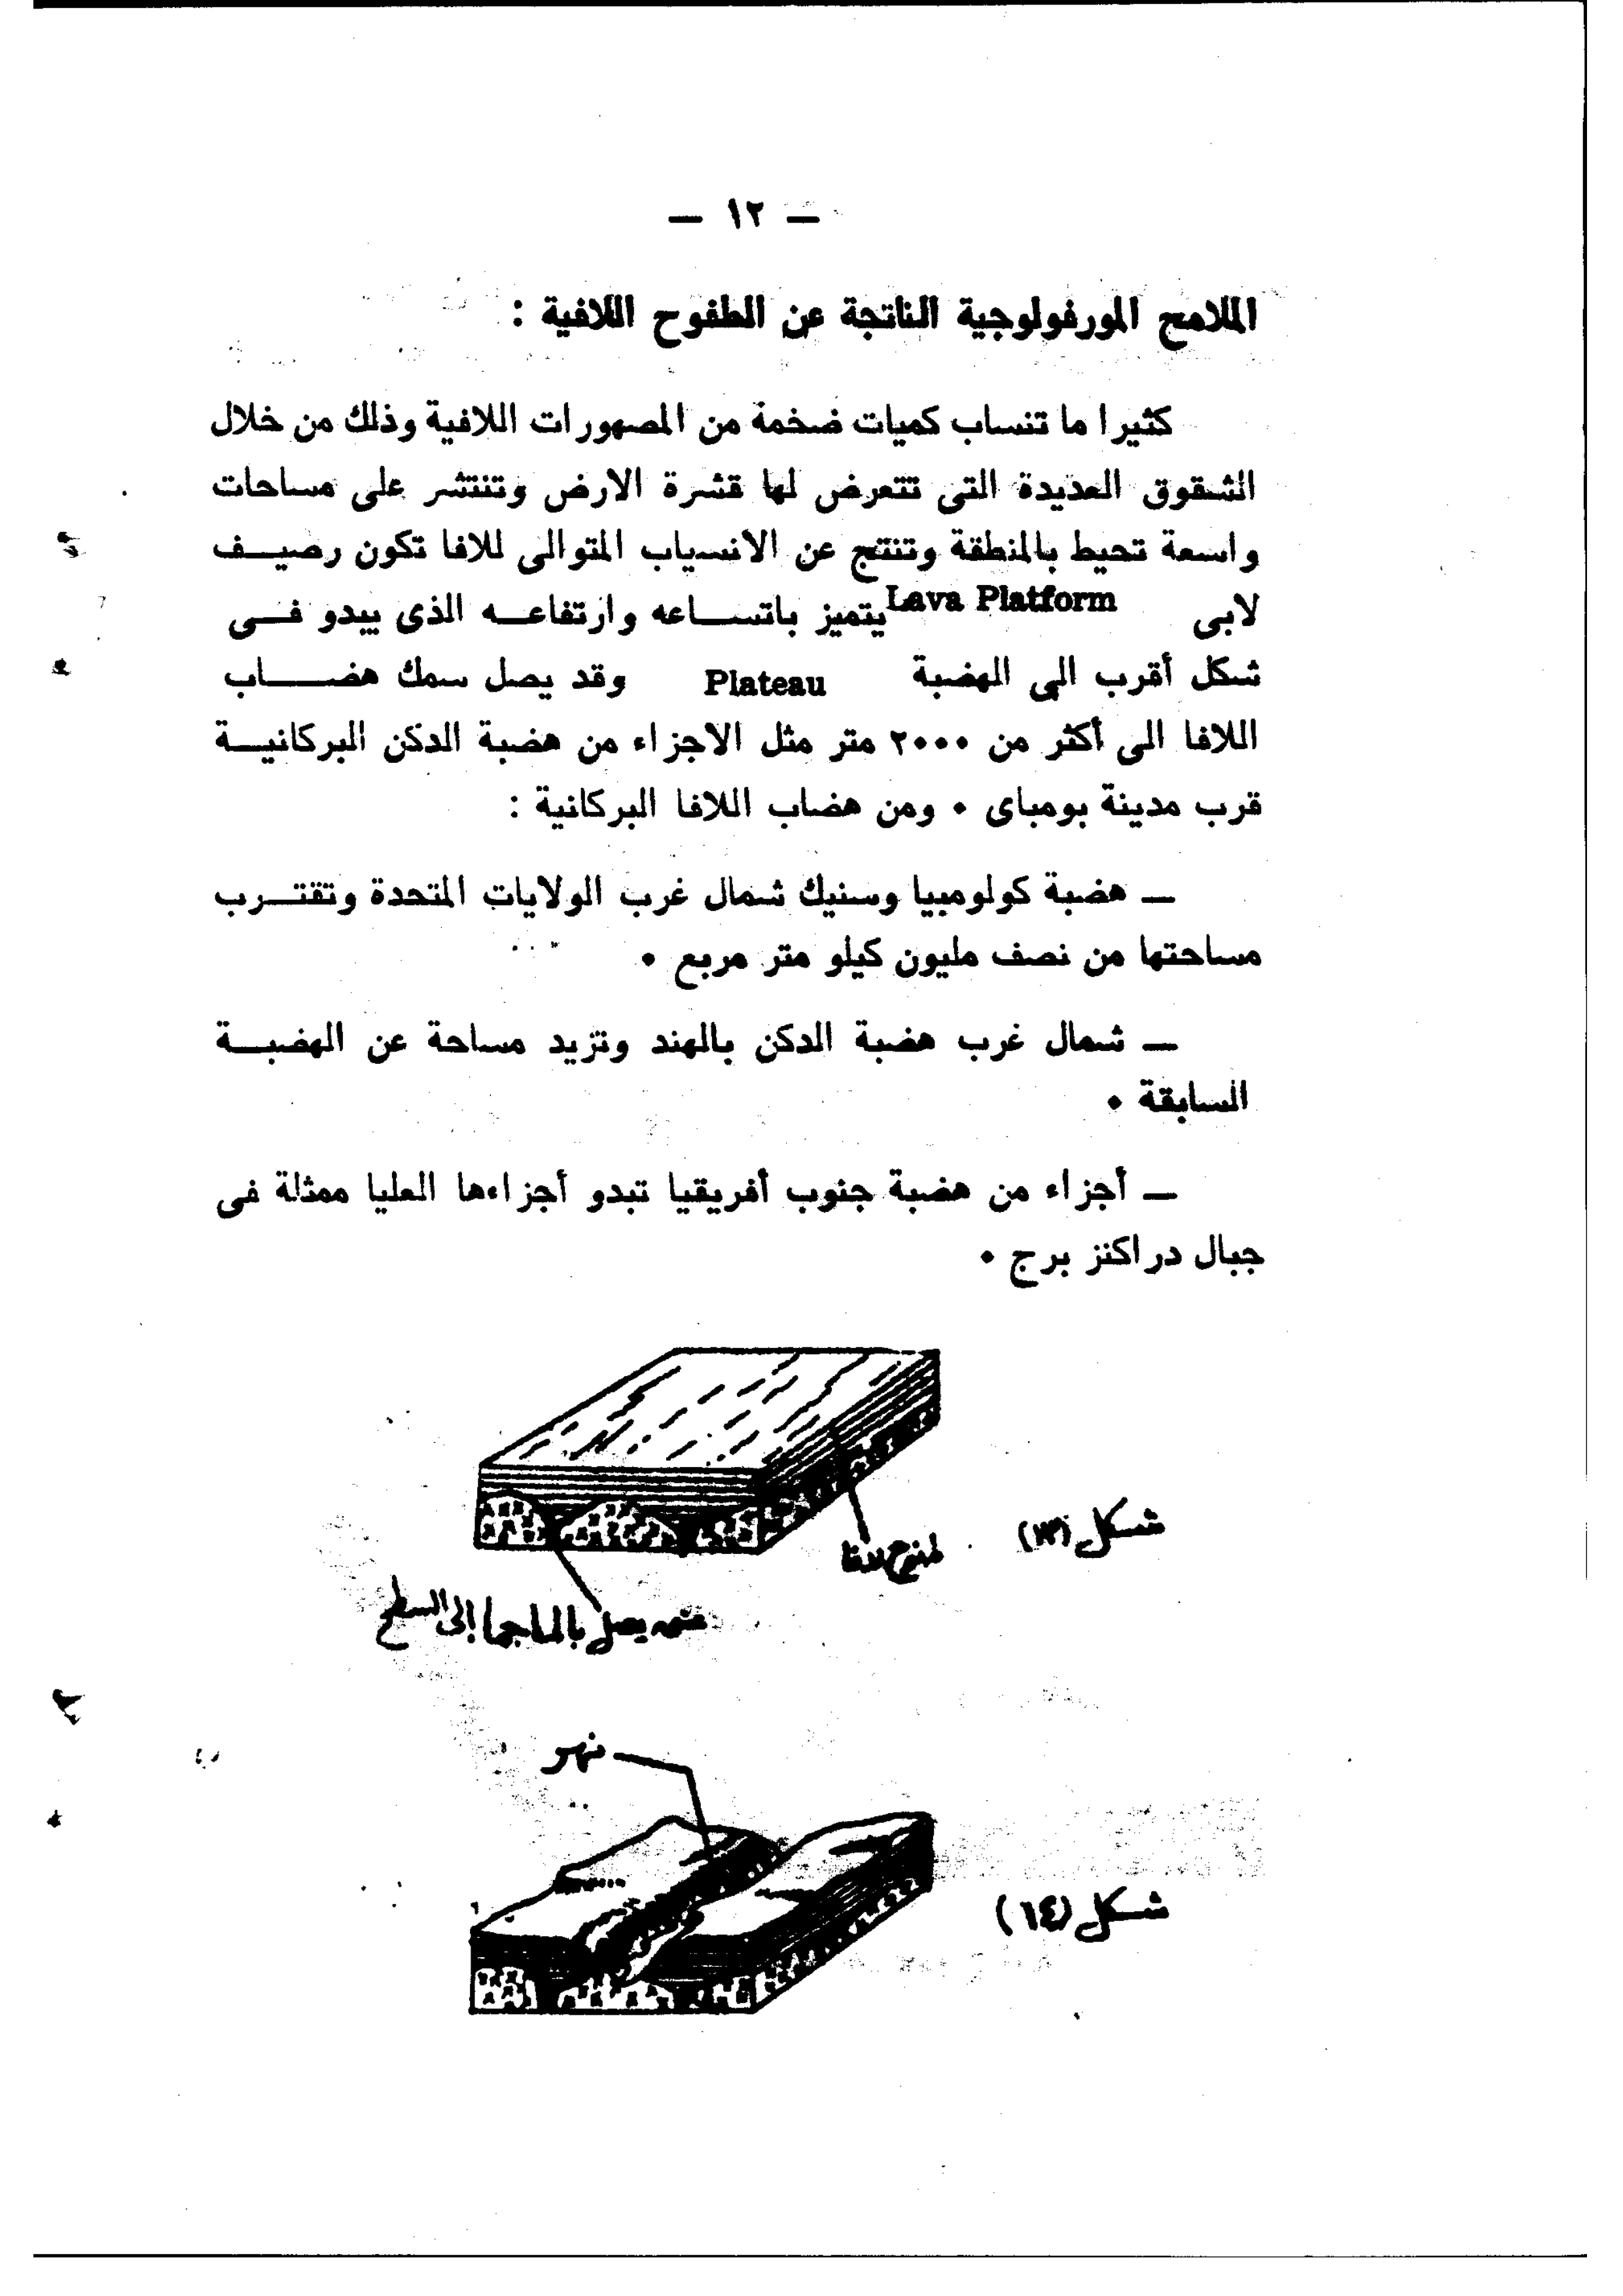 — ١٢ —
الملامح المورفولوجية الناتجة عن الطفوح اللافية :
كثيرا ما تنساب كميات ضخمة من المصهورات اللافية وذلك من خلال
الشقوق العديدة التى تتعرض لها قشرة الارض وتنتشر على مساحات
واسعة تحيط بالمنطقة وتنتج عن الانسياب المتوالى للافا تكون رصيف
لابى Lava Platform يتميز باتساعه وارتفاعه الذى يبدو فى
شكل أقرب الى الهضبة Plateau وقد يصل سمك هضاب
اللافا الى أكثر من ٢٠٠٠ متر مثل الاجزاء من هضبة الدكن البركانية
قرب مدينة بومباى ٠ ومن هضاب اللافا البركانية :
— هضبة كولومبيا وسنيك شمال غرب الولايات المتحدة وتقترب
مساحتها من نصف مليون كيلو متر مربع ٠
— شمال غرب هضبة الدكن بالهند وتزيد مساحة عن الهضبة
السابقة ٠
— أجزاء من هضبة جنوب أفريقيا تبدو أجزاءها العليا ممثلة فى
جبال دراكنز برج ٠
شكل (١٣)
يصل بالماجما إلى السطح
نهر
شكل (١٤)